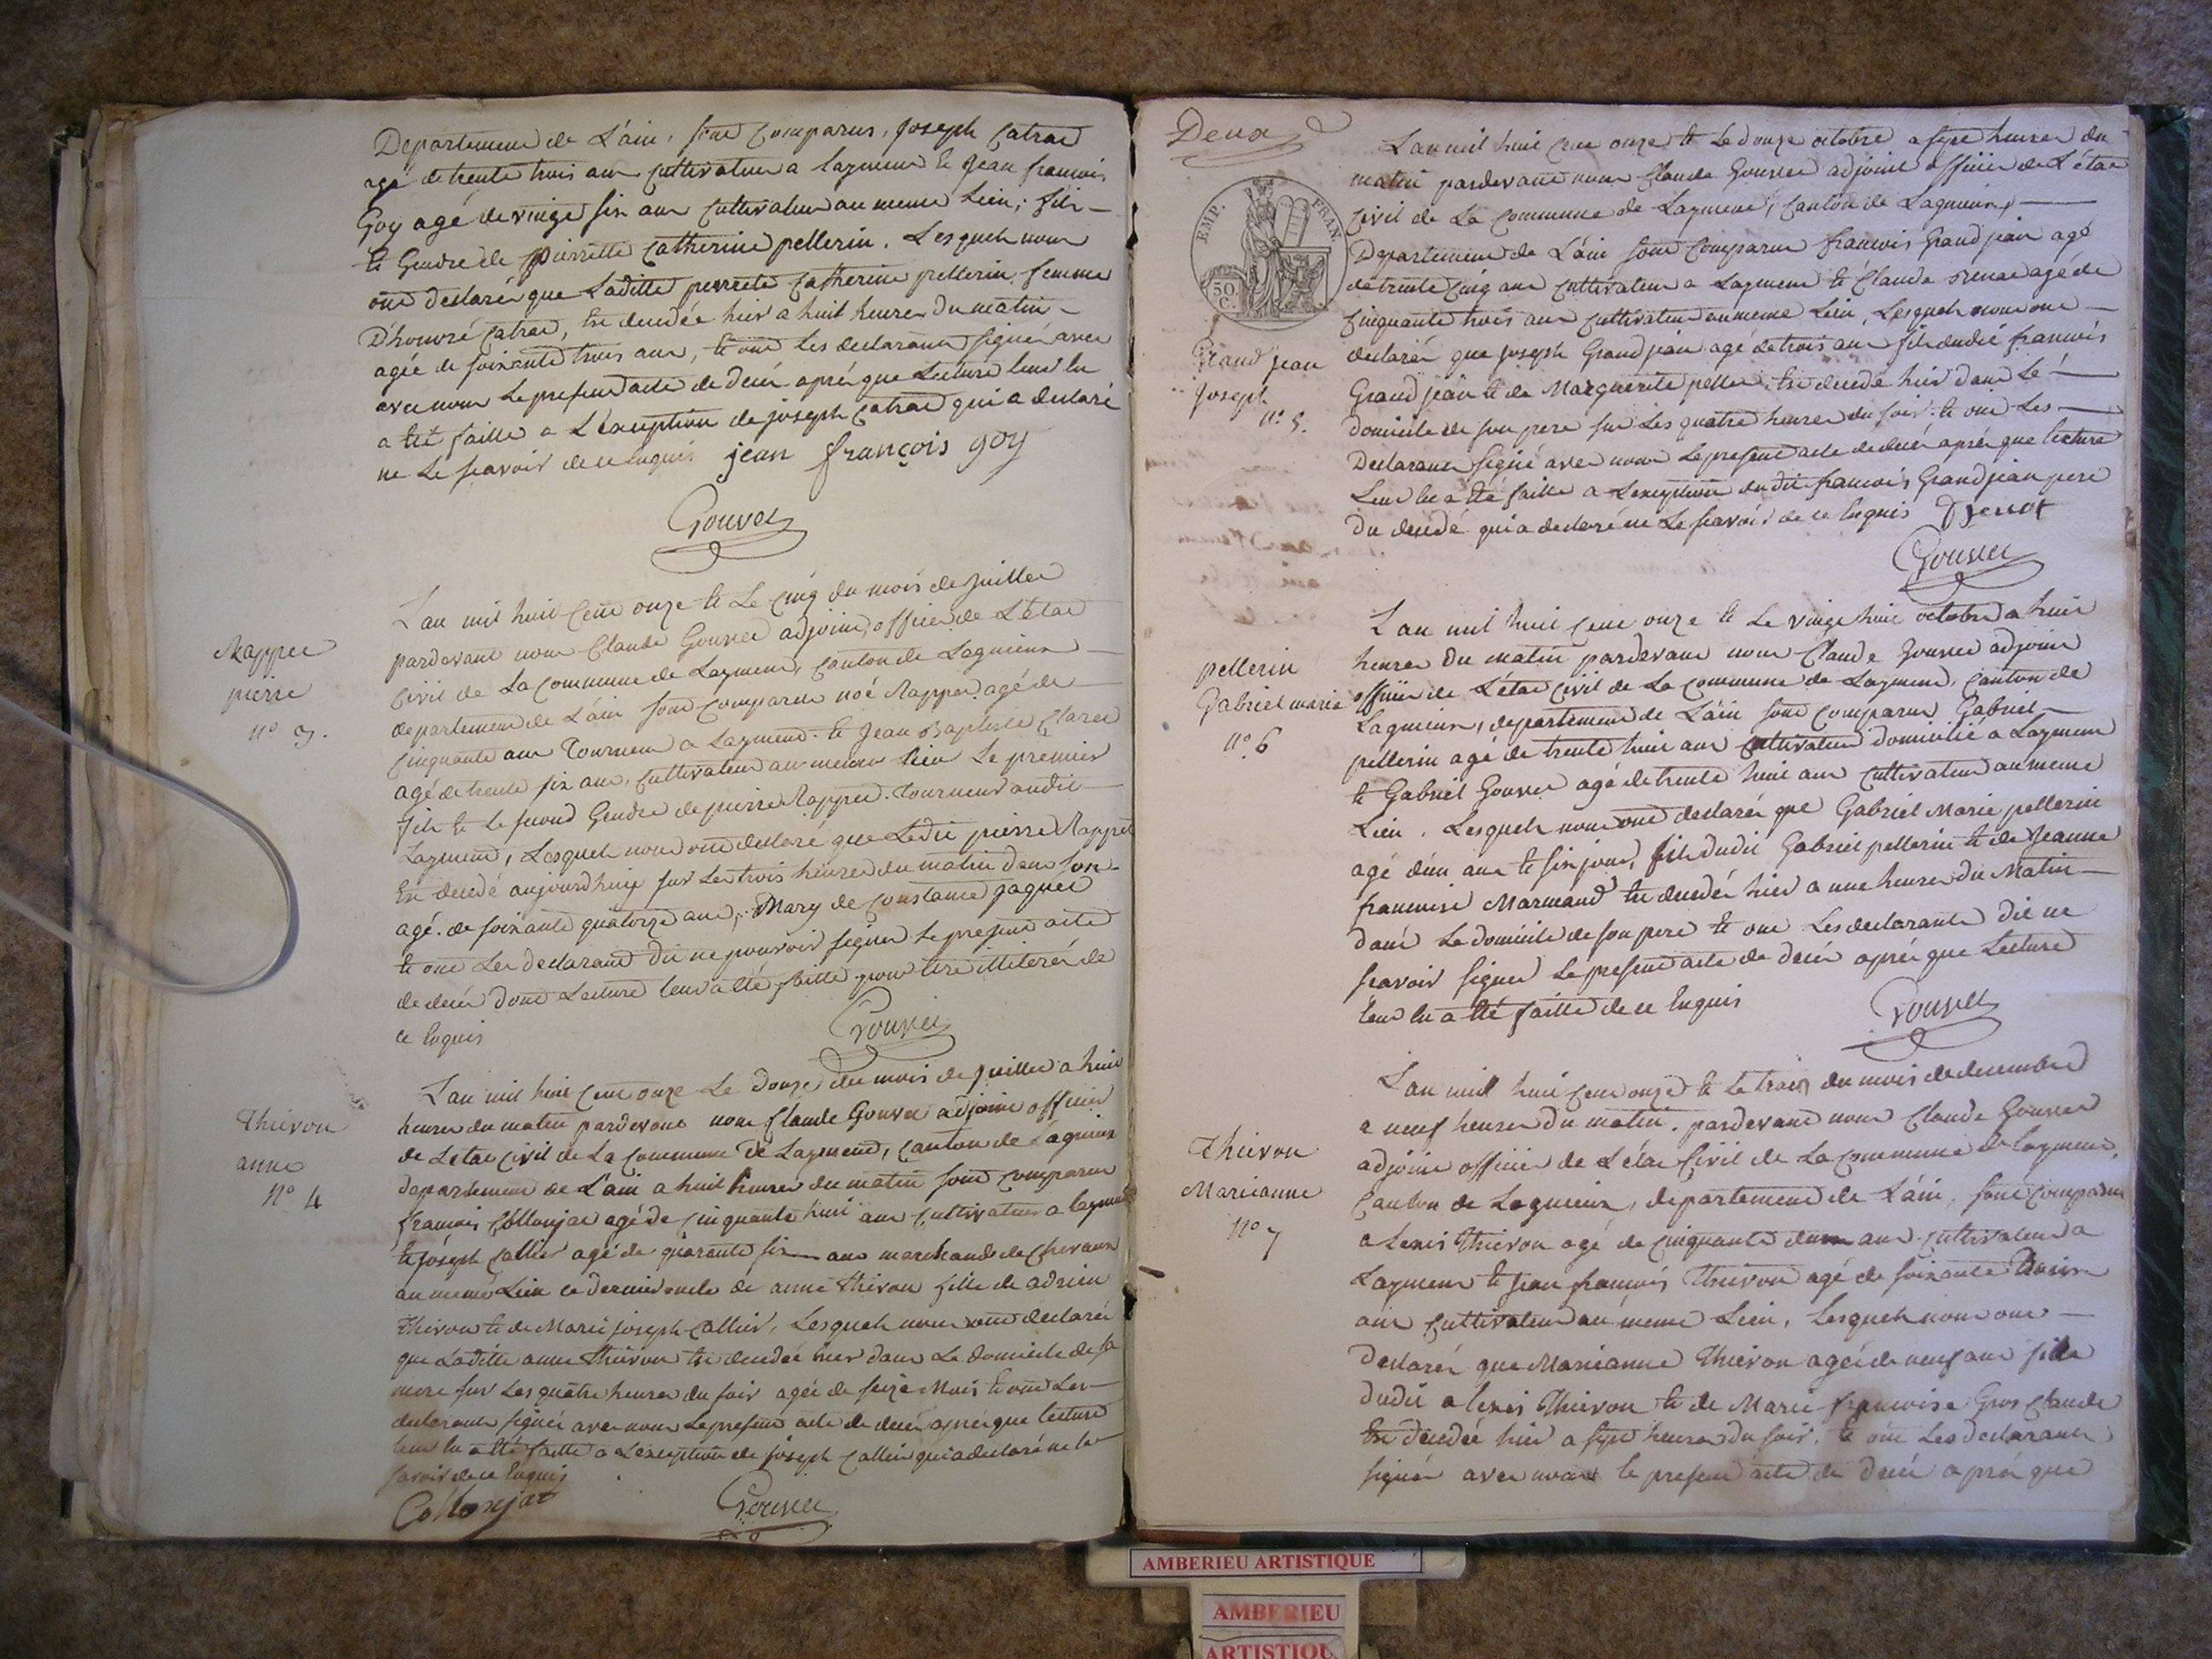 Departement de L'ain, sont Comparus, joseph Catrat
agé de trente trois ans Cultivateur a layment & Jean francois
Goy agé de vingt six ans Cultivateur au meme Lieu; fils
& Gendre de Pierrette Catherine pellerin. Lesquels nous
ont declaré que Laditte perrete Catherine pellerin femme
D'honoré Catrat, est decedée hier a huit heures du matin
agée de soixante trois ans, & ont les declarants signé avec
avec nous Le present acte de decés aprés que Lecture leur lu
a été faille a L'exception de joseph Catrat qui a declaré
ne Le scavoir de ce enquis jean françois goy
Gouvet
Rappet
pierre
n° 3.
L'an mil huit Cent onze & Le Cinq du mois de juillet
pardevant nous Claude Gouvet adjoint officier de L'état
Civil de La Commune de Layment, Canton de Lagnieux
departement de L'ain sont comparu noé Rappet agé de
Cinquante ans Tourneur a Layment & Jean Baptiste Claret
agé de trente six ans, Cultivateur au meme lieu Le premier
fils & le second Gendre de pierre Rappet Tourneur audit
Layment, Lesquels nous ont declaré que Ledit pierre Rappet
Est decedé aujourdhuy sur Les trois heures du matin dans son
agé de soixante quatorze ans, Mary de Constance jaquet
& ont Les declarant dit ne pouvoir signer Le present acte
de decés dont Lecture leur a été faitte pour etre illiterés de
ce Enquis
Gouvet
Thievon
anne
n° 4
L'an mil huit Cent onze Le douze du mois de juillet a huit
heures du matin pardevant nous Claude Gouvet adjoint officier
de L'etat Civil de La Commune de Layment, Canton de Lagnieux
departement de L'ain a huit heures du matin sont comparu
francois Collonjat agé de Cinquante huit ans Cultivateur a layment
& joseph Callier agé de quarante six ans marchand de Chevaux
au meme Lieu ce dernier oncle de anne thievon fille de adrien
thievon & de Marie joseph Callier, Lesquels nous ont declaré
que Laditte anne thievon est decedée hier dans Le domicile de sa
mere sur Les quatre heures du soir agée de seize Mois & ont Les
declarants signé avec nous Le present acte de decés aprés que Lecture
leur lu a été faitte a L'exception de joseph Callier qui a declaré ne le
savoir de ce Enquis
Collonjat Gouvet
Deux
EMP. FRAN.
50 C.
Grand jean
joseph
n° 5.
L'an mil huit Cent onze & Le douze octobre a sept heures du
matin pardevant nous Claude Gouvet adjoint officier de L'état
Civil de La Commune de Layment, Canton de Lagnieux,
Departement de L'ain sont Comparu francois Grand jean agé
de trente Cinq ans Cultivateur a Layment & Claude agé de
Cinquante trois ans Cultivateur au meme Lieu, Lesquels nous ont
declaré que joseph Grand jean agé de trois ans fils dudit francois
Grand jean & de Marguerite est decedé hier dans Le
domicile de son pere sur Les quatre heures du soir & ont Les
Declarants signé avec nous Le present acte de decés aprés que lecture
Leur lu a été faitte a L'exception dudit francois Grand jean pere
du decedé qui a declaré ne Le scavoir de ce Enquis
Gouvet
pellerin
Gabriel marie
n° 6
L'an mil huit Cent onze & Le vingt huit octobre a huit
heures du matin pardevant nous Claude Gouvet adjoint
officier de L'état Civil de La Commune de Layment, Canton de
Lagnieux, departement de L'ain sont Comparu Gabriel
pellerin agé de trente huit ans Cultivateur domicilié a Layment
& Gabriel Gouvet agé de trente huit ans Cultivateur au meme
Lieu. Lesquels nous ont declaré que Gabriel Marie pellerin
agé d'un an & six jours, fils dudit Gabriel pellerin & de Jeanne
francoise Marmand est decedé hier a une heures du Matin
dans Le domicile de son pere & ont Les declarants dit ne
scavoir signer Le present acte de decés aprés que Lecture
Leur lu a été faitte de ce Enquis
Gouvet
Thievon
Marieanne
n° 7
L'an mil huit Cent onze & Le trois du mois de decembre
a neuf heures du matin pardevant nous Claude Gouvet
adjoint officier de L'état Civil de La Commune de layment,
Canton de Lagnieux, departement de L'ain, sont Comparu
alexis Thievon agé de Cinquante deux ans Cultivateur a
Layment & jean francois Thievon agé de soixante treize
ans Cultivateur au meme Lieu, Lesquels nous ont
declaré que Marieanne Thievon agée de neuf ans fille
dudit alexis Thievon & de Marie francoise Gros Claude
est decedée hier a sept heures du soir, & ont Les declarants
signé avec nous le present acte de decés aprés que
AMBERIEU ARTISTIQUE
AMBERIEU
ARTISTIQU